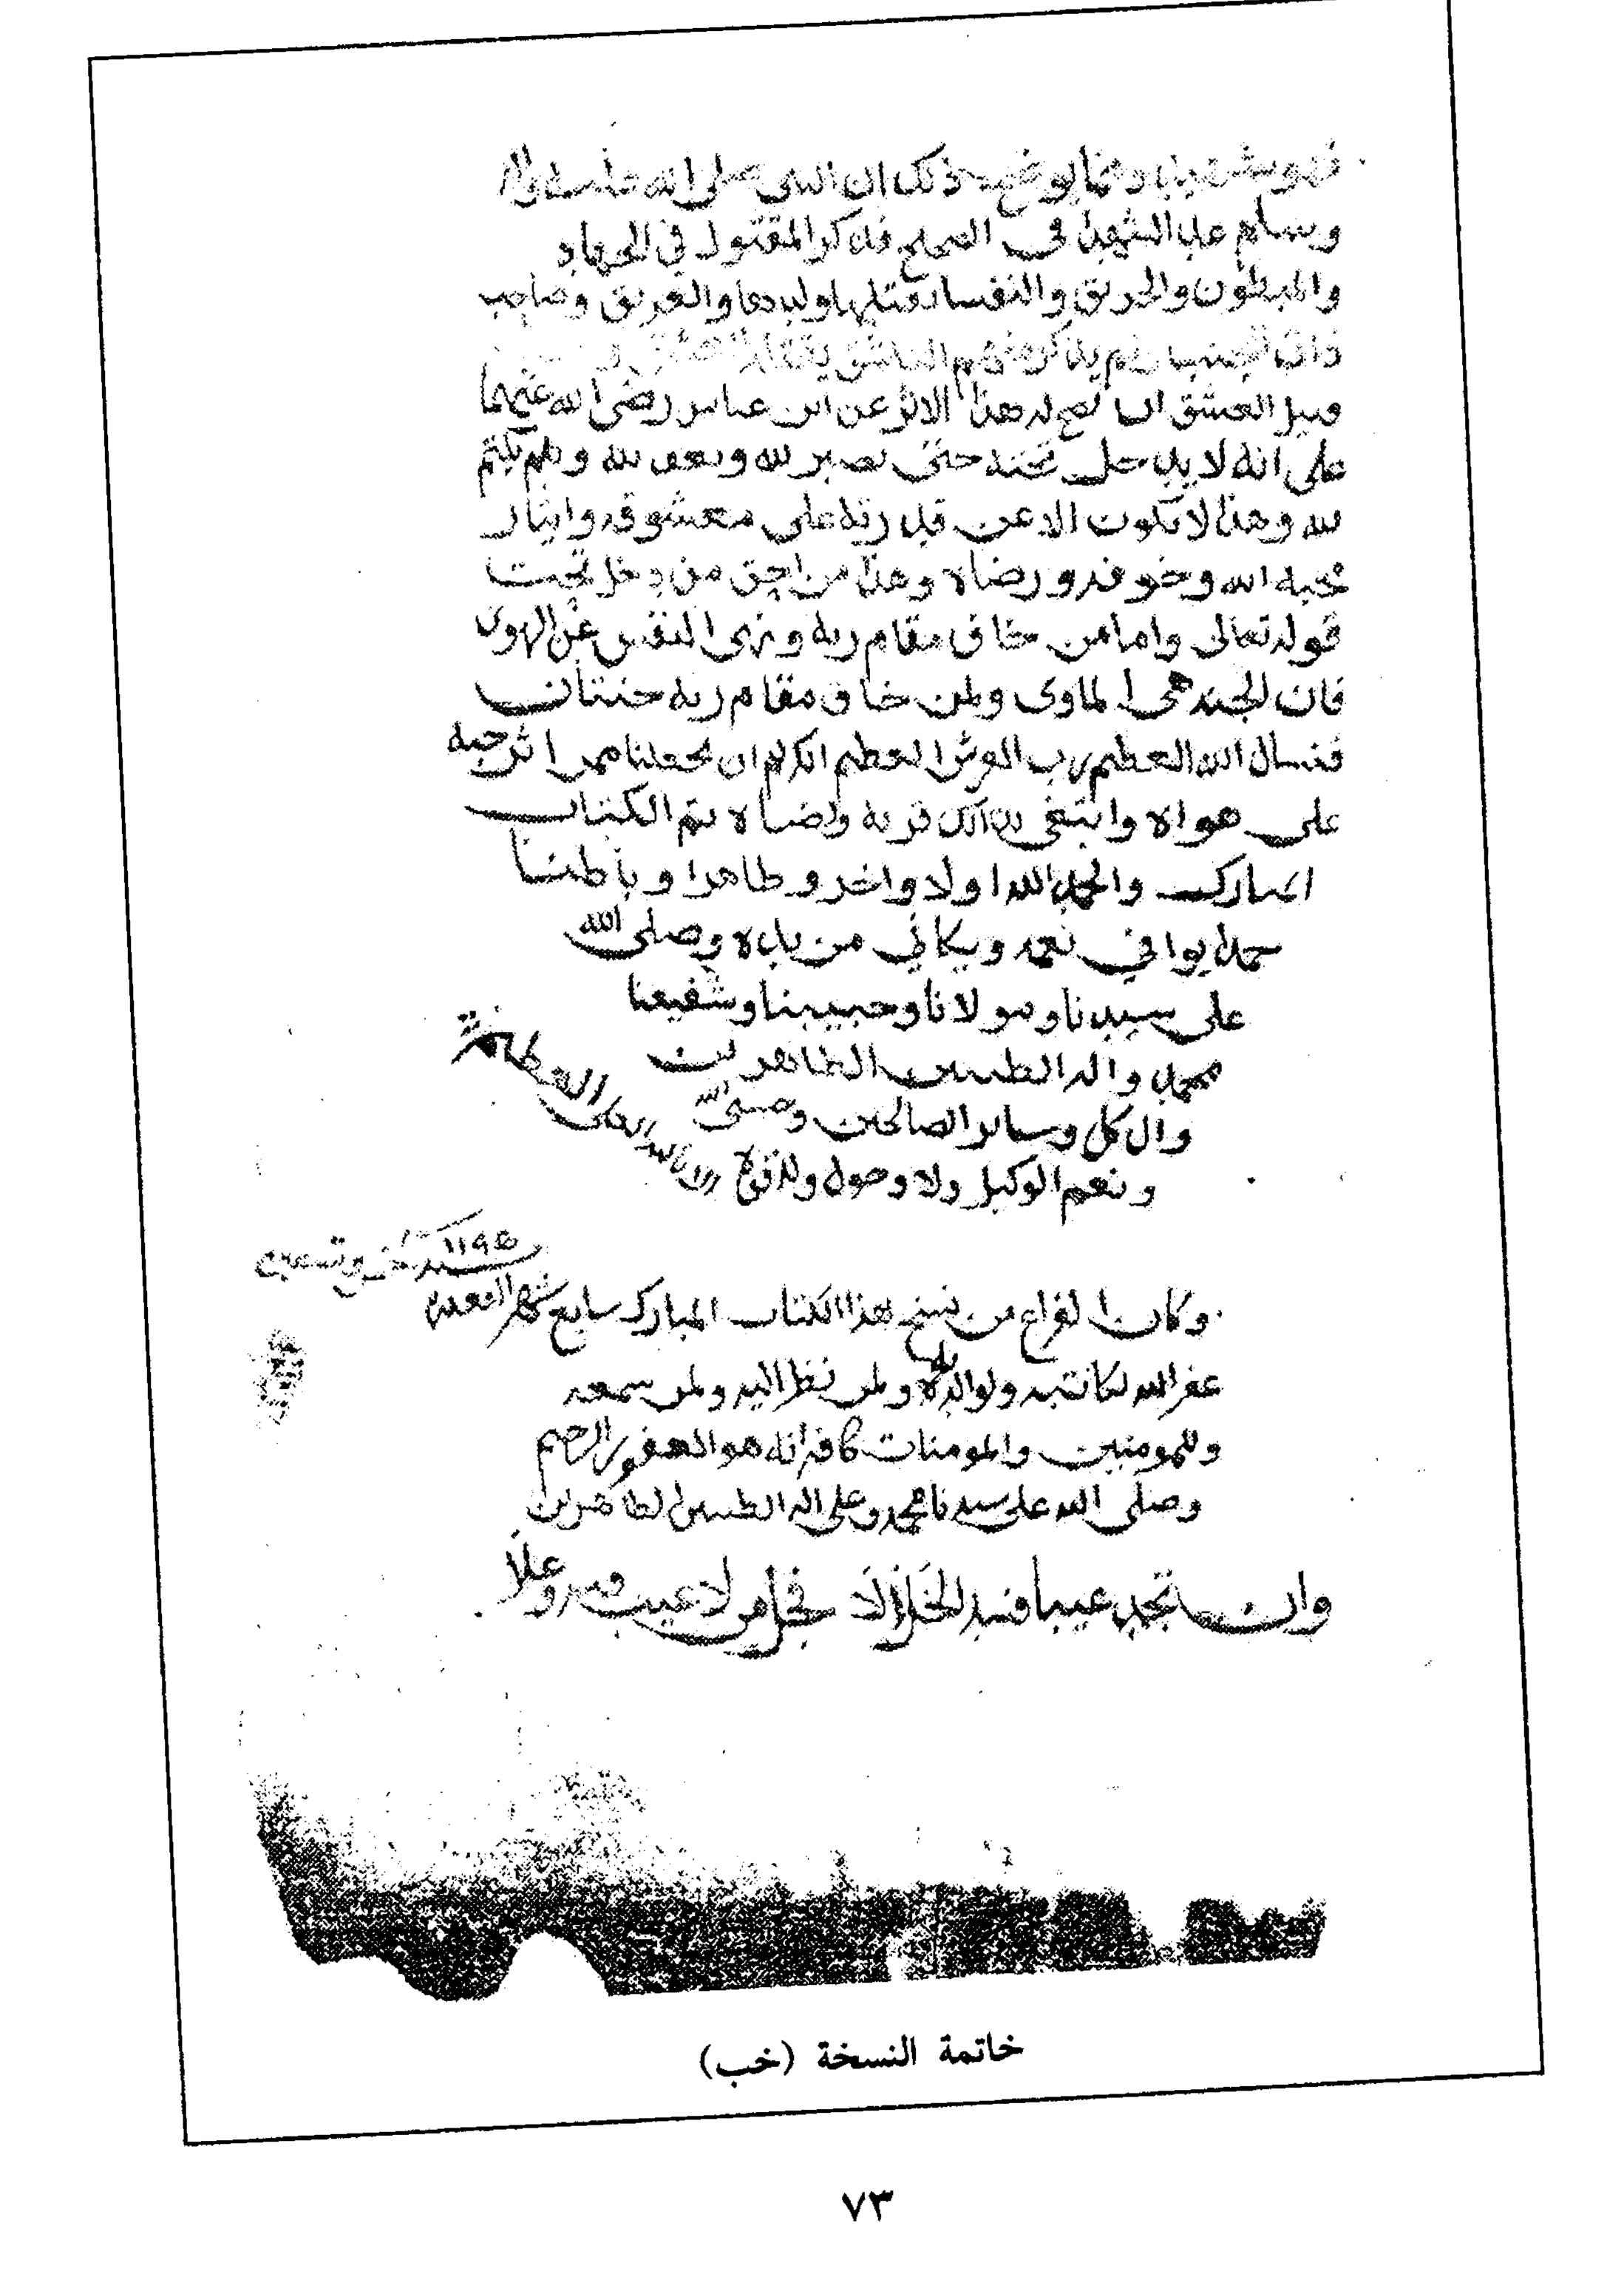 ذلك ان النبي صلى الله عليه واله
وسلم عد الشهدا في الصحيح فذكر المقتول في الجهاد
والمبطون والحريق والنفساء يقتلها ولدها والغريق وصاحب
ذات الجنب ولم يذكر منهم العاشق يقتله العشق
قتيل العشق ان يصح له هذا الاثر عن ابن عباس رضي الله عنهما
على انه لا يدخل الجنة حتى يصبر لله ويعف لله ويكتم
لله وهذا لا يكون الا عن قدرته على معشوقه وايثار
محبة الله وخوفه ورضاه وهذا من احق من دخل تحت
قوله تعالى واما من خاف مقام ربه ونهى النفس عن الهوى
فان الجنة هي الماوى ولمن خاف مقام ربه جنتان
فنسال الله العظيم رب العرش العظيم الكريم ان يجعلنا ممن اثر حبه
على هواه وابتغى بذلك قربه ورضاه تم الكتاب
المبارك والحمد لله اولا واخر وظاهرا وباطنا
حمدا يوافي نعمه ويكافي من يده وصلى الله
على سيدنا ومولانا وحبيبنا وشفيعنا
محمد واله الطيبين الطاهرين
وال كل وساير الصالحين وحسبي الله
ونعم الوكيل ولا وحول ولا قوة الا بالله العلي العظيم
١١٩٥
وكان الفراغ من نسخ هذا الكتاب المبارك سابع شهر القعدة
غفر الله لكاتبه ولوالديه ولمن نظر اليه ولمن سمعه
وللمومنين والمومنات كافة انه هو الغفور الرحيم
وصلى الله على سيدنا محمد وعلى اله الطيبين الطاهرين
وان تجد عيبا فسد الخللا فجل من لا عيب فيه وعلا
خاتمة النسخة (خب)
٧٣